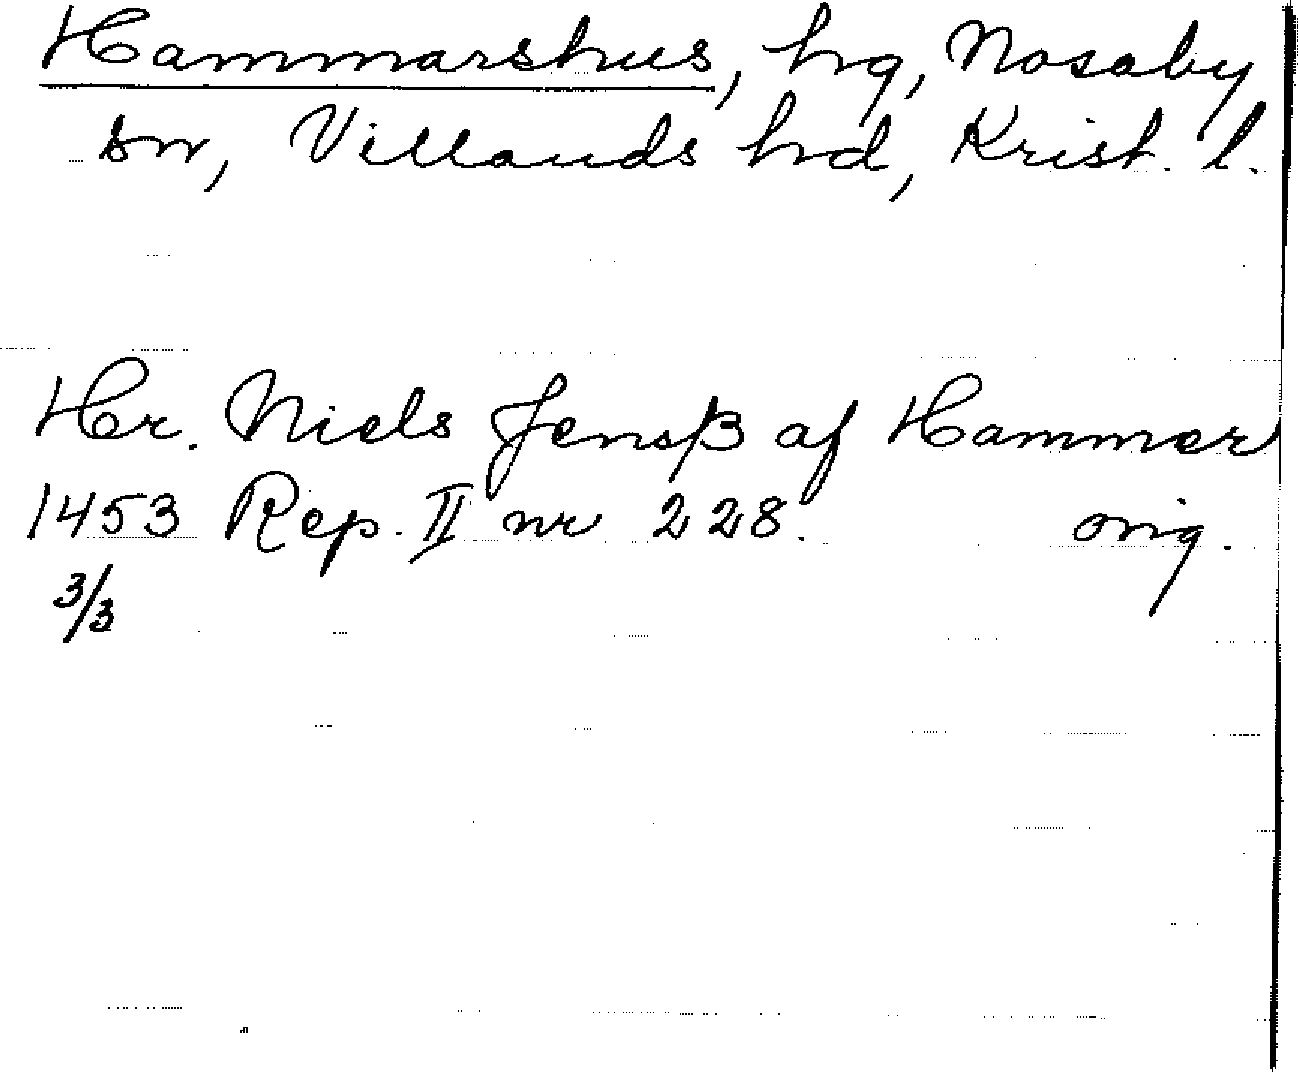 Hammarshus, hg, Nosaby
sn, Villands hd, Krist. l.
Hr. Niels Jensß af Hammer
1453 Rep. II nr 228. orig.
3/3